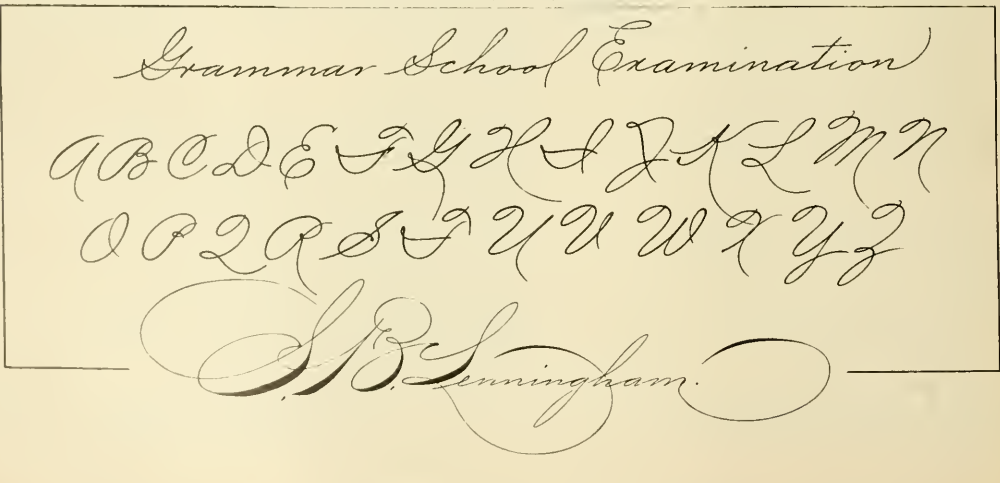 Grammar School Examination
A B C D E F G H I J K L M N
O P Q R S T U V W X Y Z
S. B.